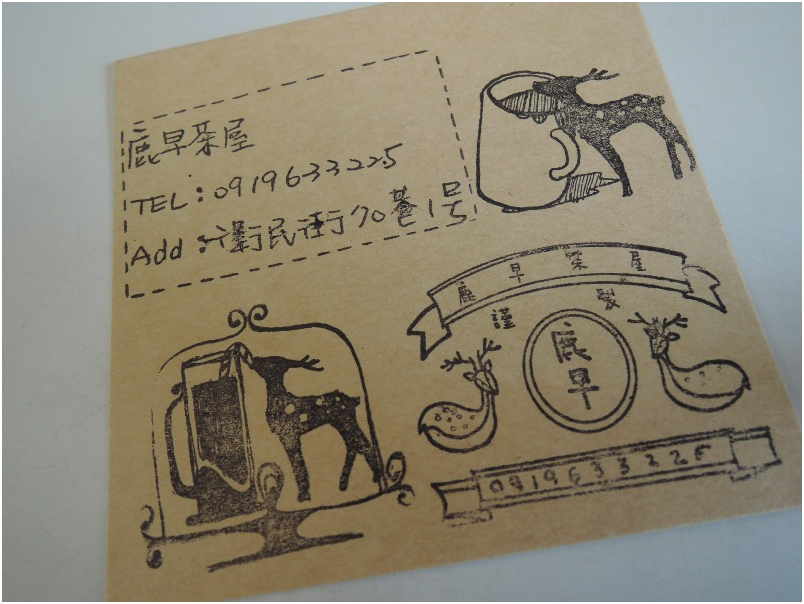 鹿早茶屋
TEL:0919633225
Add:衛民街70巷1号
鹿早茶屋
謹製
鹿早
0919633225